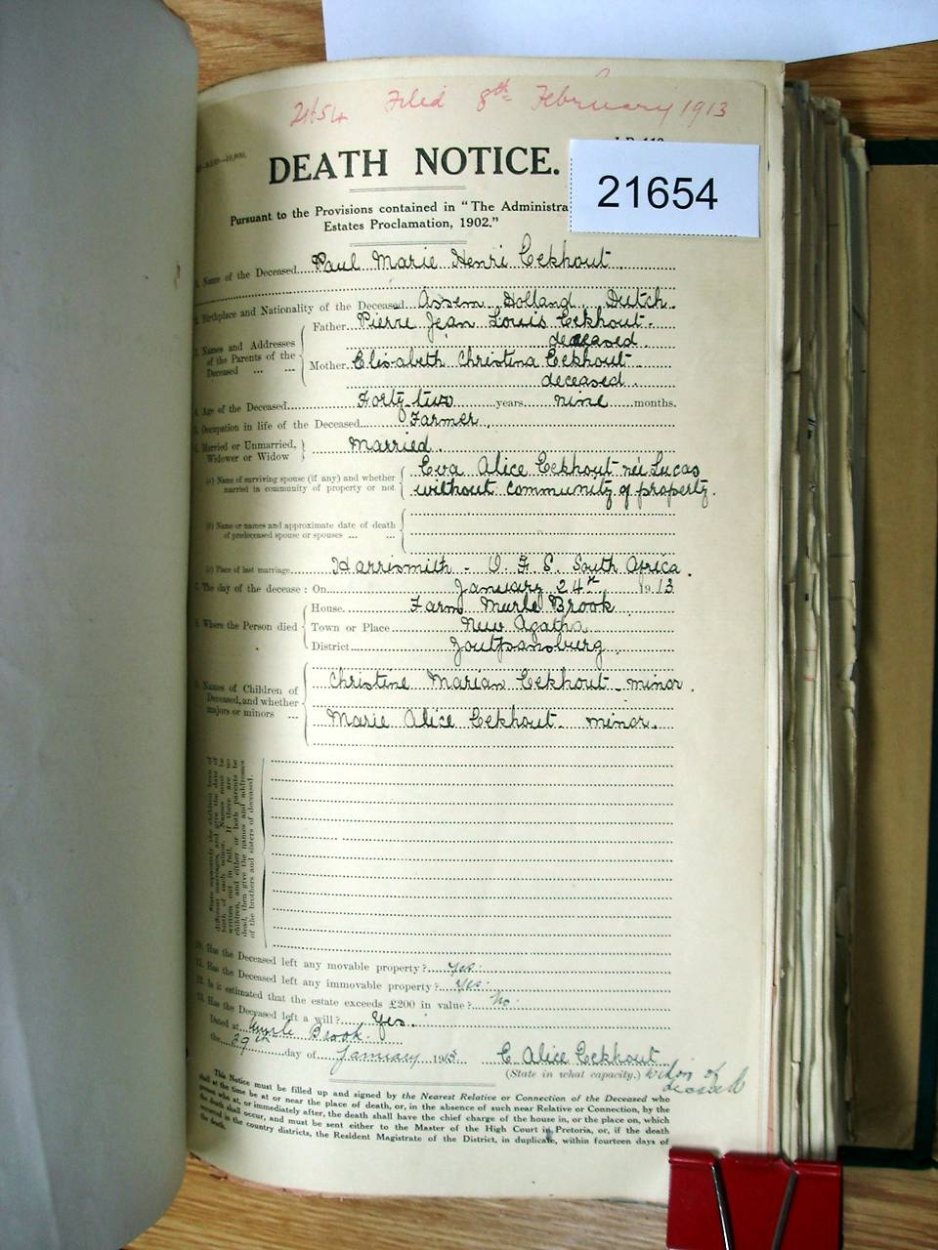 21654 Filed 8th February 1913
DEATH NOTICE.
21654
Pursuant to the Provisions contained in "The Administra
Estates Proclamation, 1902."
Name of the Deceased Paul Marie Henri Eekhout
Birthplace and Nationality of the Deceased Assem Holland Dutch.
Names and Addresses of the Parents of the Deceased
Father Pierre Jean Louis Eekhout.
deceased.
Mother Elisabeth Christina Eekhout
deceased.
Age of the Deceased Forty-two years nine months.
Occupation in life of the Deceased Farmer.
Married or Unmarried, Widower or Widow } Married.
(a) Name of surviving spouse (if any) and whether married in community of property or not
Eva Alice Eekhout née Lucas
without community of property.
(b) Name or names and approximate date of death of predeceased spouse or spouses
(c) Place of last marriage Harrismith - O. F. S. South Africa.
7. The day of the decease: On January 24th 1913
Where the Person died
House Farm Murle Brook
Town or Place New Agatha
District Zoutpansburg.
Names of Children of Deceased, and whether majors or minors
Christine Marian Eekhout minor.
Marie Alice Eekhout. minor.
State separately the children born of different marriages, and give the date of birth of each minor. Names must be written out in full. If there are no children, and either or both parents be dead, then give the names and addresses of the brothers and sisters of deceased.
10. Has the Deceased left any movable property? Yes.
11. Has the Deceased left any immovable property? Yes.
12. Is it estimated that the estate exceeds £200 in value? No.
13. Has the Deceased left a will? Yes.
Dated at Murle Brook.
the 29th day of January 1913 E. Alice Eekhout
(State in what capacity.) widow of
deceased
This Notice must be filled up and signed by the Nearest Relative or Connection of the Deceased who
shall at the time be at or near the place of death, or, in the absence of such near Relative or Connection, by the
person who at, or immediately after, the death shall have the chief charge of the house in, or the place on, which
the death shall occur, and must be sent either to the Master of the High Court in Pretoria, or, if the death
occurred in the country districts, the Resident Magistrate of the District, in duplicate, within fourteen days of
the death.